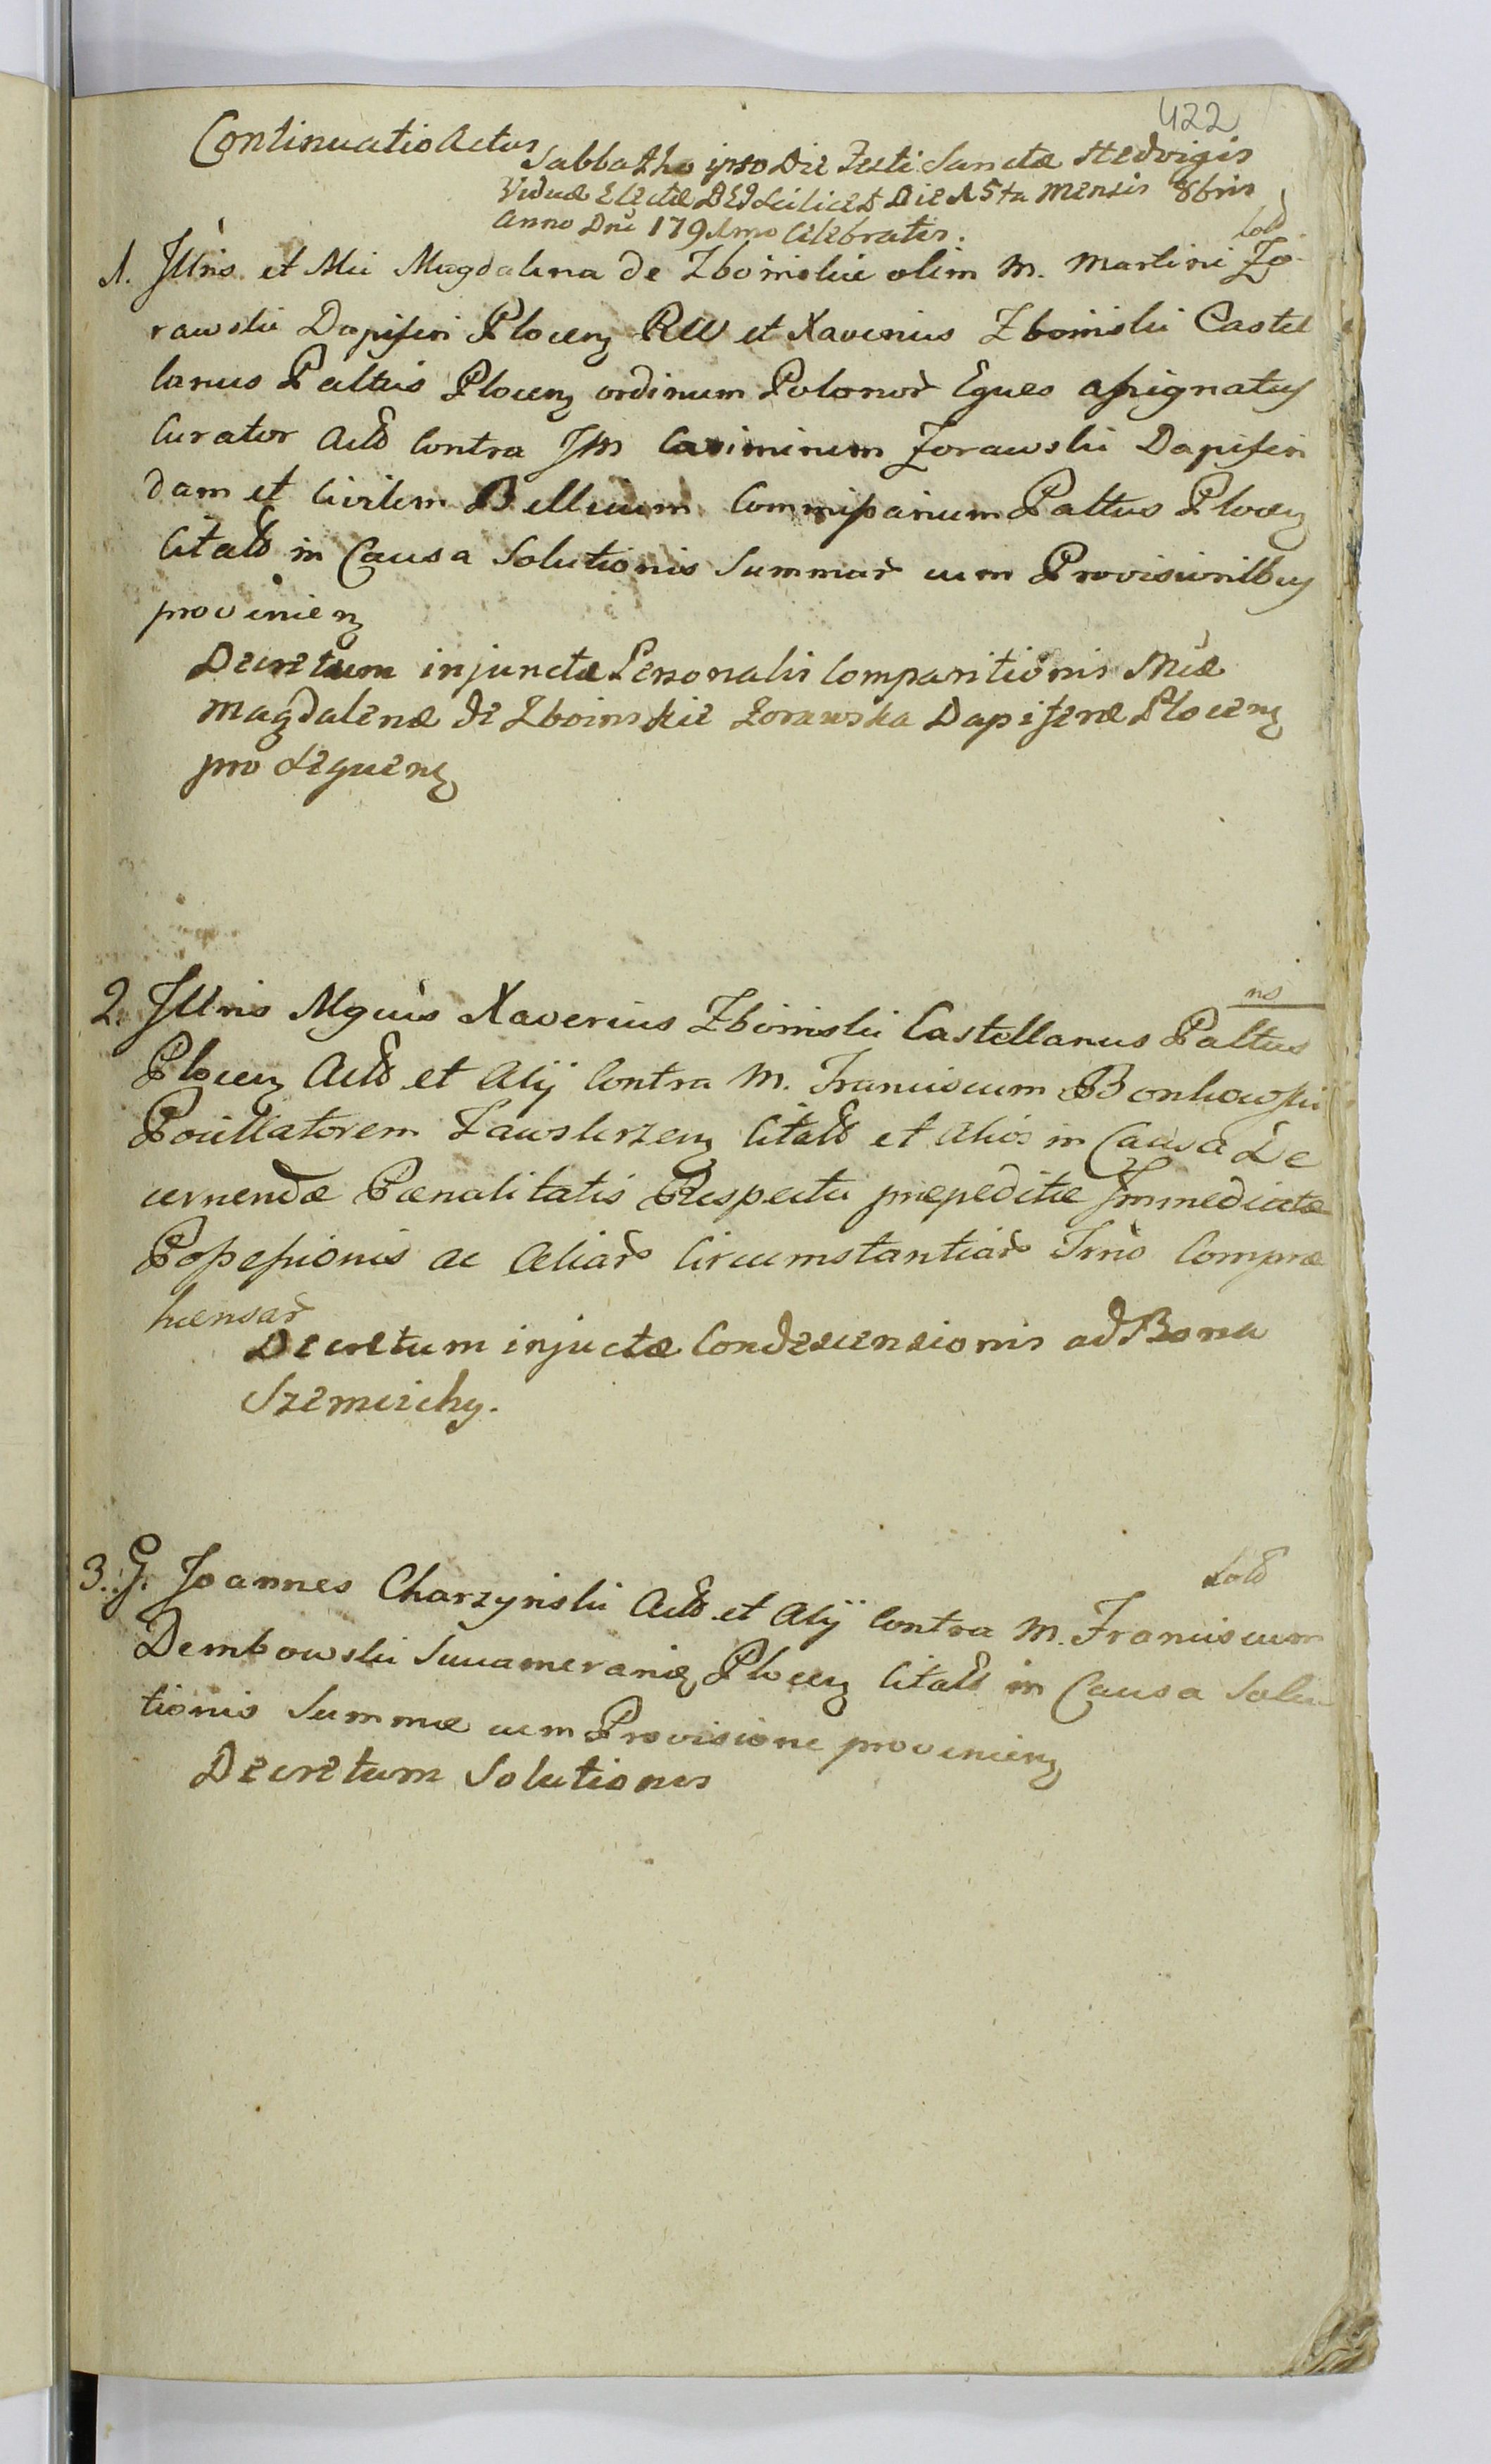 422
Continuatio Actus
Sabbatho ipso Die Festi Sanctæ Hedvigis
Viduæ Electæ DEI scilicet Die 15ta Mensis 8bris
Anno Dni 1791mo Celebratis.
sold
1. Illris et Mci Magdalena de Zboinskie olim M. Martini Zo-
rawski Dapiferi Plocen Rll et Xaverius Zboinski Castel
lanus Paltus Plocen ordinum Polonor Eques assignatus
Curator Act Contra JM Casimirum Zorawski Dapiferi
dam et Civilem Bellicum Commissarium Paltus Plocen
Citat in Causa Solutionis Summar cum Provisionibus
provenien
Decretum injunctæ Personalis Comparitionis Mcæ
Magdalenæ de Zboinskie Zorawska Dapiferæ Plocen
pro sequen
ns
2. Illris Mgcus Xaverius Zboinski Castellanus Paltus
Plocen Act et Alij Contra M. Franciscum Bonkowski
Pocillatorem Zawskrzen Citat et Alios in Causa De
cernendæ Pœnalitatis Respectu præpeditæ Immediatæ
Possessionis ac Aliar Circumstantiar Trno Compræ
hensar
Decretum injuctæ Condescensionis ad Bona
Szemichy.
sold
3. G. Joannes Charzynski Act et Alij Contra M. Franciscum
Dembowski Succameranid Plocen Citat in Causa Solu
tionis Summæ cum Provisione provenien
Decretum Solutionis